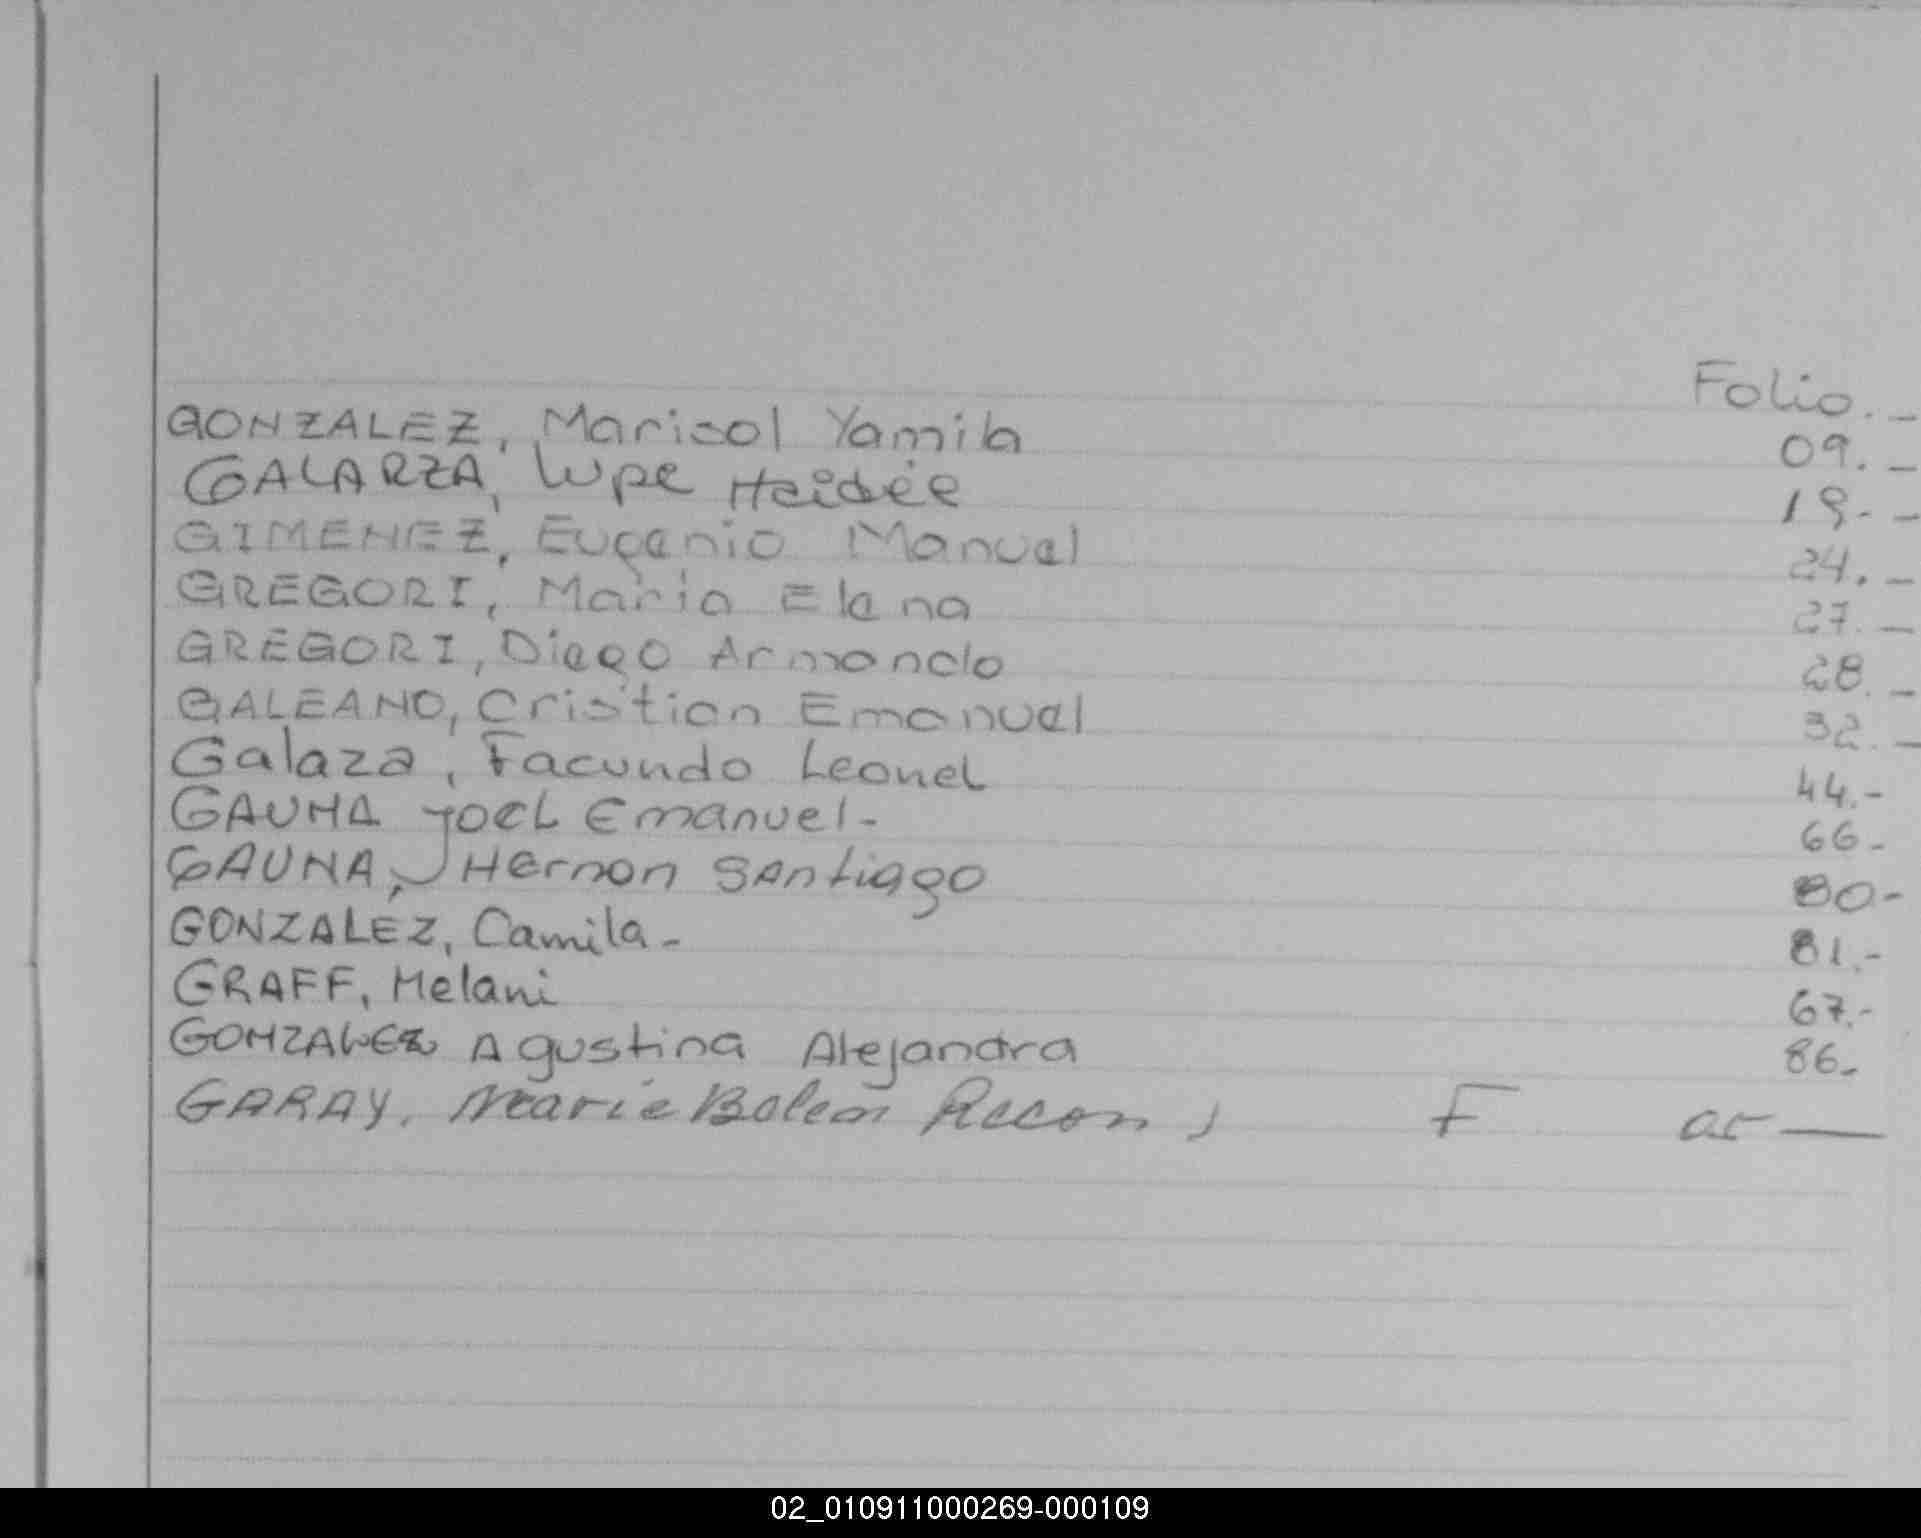 Folio.-
GONZALEZ, Marisol Yamila 09.-
GALARZA, Lupe Haidée 19.-
GIMENEZ, Eugenio Manuel 24.-
GREGORI, María Elena 27.-
GREGORI, Diego Armando 28.-
GALEANO, Cristian Emanuel 32.-
Galaza, Facundo Leonel 44.-
GAUNA Joel Emanuel- 66-
GAUNA, Hernan Santiago 80-
GONZALEZ, Camila- 81.-
GRAFF, Melani 67.-
GONZALEZ Agustina Alejandra 86-
GARAY, Maria Belen F
02_010911000269-000109